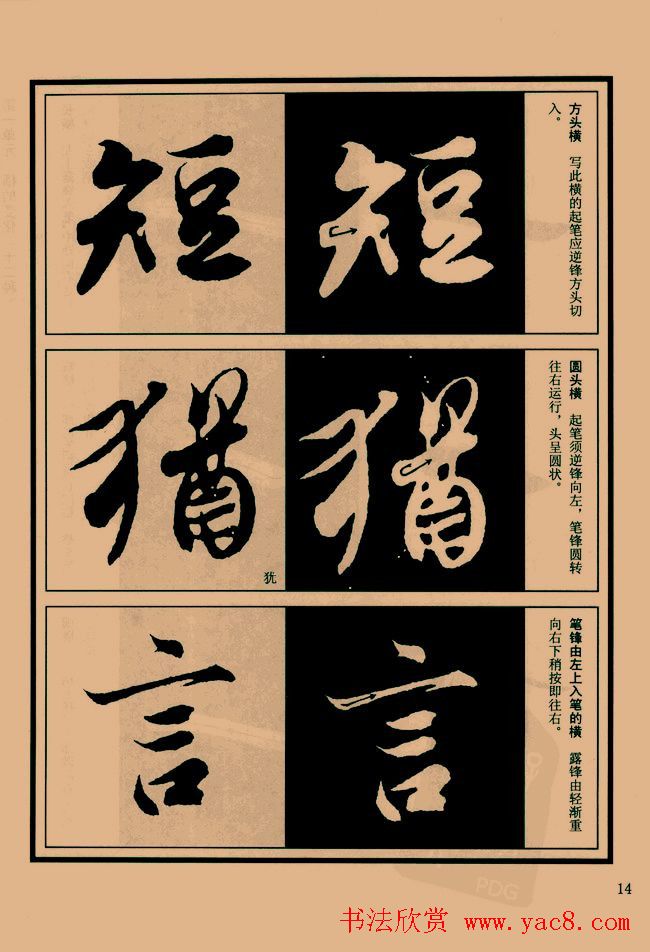 方头横 写此横的起笔应逆锋方头切
入。
短
短
圆头横 起笔须逆锋向左，笔锋圆转
往右运行，头呈圆状。
猶
猶
犹
笔锋由左上入笔的横 露锋由轻渐重
向右下稍按即往右。
言
言
14
PDG
书法欣赏 www.yac8.com